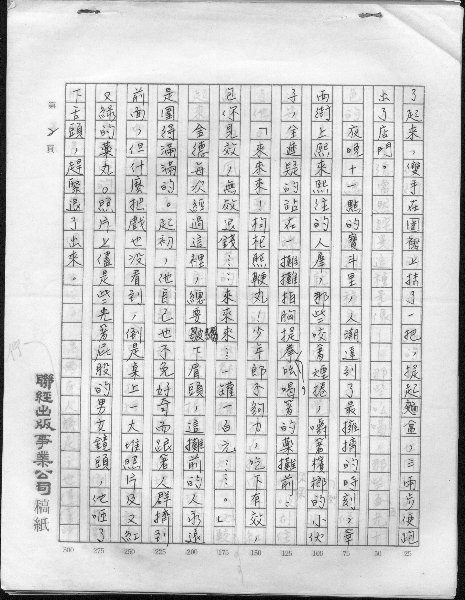 了起來，雙手在圍裙上抹了一把，提起麵盒，三兩步便跑
出了店門。
夜晚十一點的寶斗里，人潮達到了最擁擠的時刻，華
西街上熙來熙往的人羣，那些咬著煙捲，嚼著檳榔的小伙
子，全遲疑的站在一攤攤拍胸捉拳吆喝著的藥攤前。
「來來來！枸杞熊鞭丸！少年郎予夠力，吃下有效，
包你見效，無效退錢……來來來……一罐一百元……。」
金德每次經過這裡，總要皺下眉頭，這攤前的人永遠
是圍得滿滿的。起初，他自己也不免好奇而跟著人群擠到
前面，但什麼把戲也沒看到，倒是桌上一大堆照片及又紅
又綠的藥丸。照片上儘是些光著屁股的男女鏡頭，他咂了
下舌頭，趕緊退了出來。
第 2 頁
聯經出版事業公司稿紙
300 275 250 225 200 175 150 125 100 75 50 25